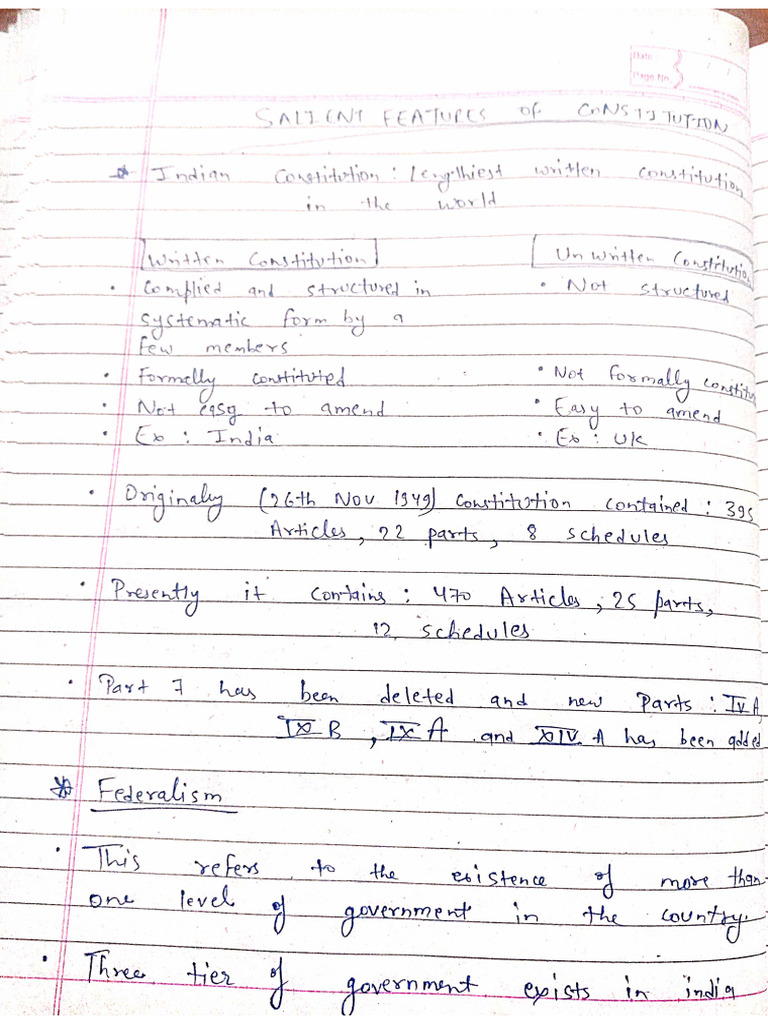 Date / /
Page No.
SALIENT FEATURES OF CONSTITUTION
Indian Constitution : Lengthiest written constitution
in the world
Written Constitution
Unwritten Constitution
• Complied and structured in
systematic form by a
few members
• Not structured
• Formally constituted
• Not formally constitu
• Not easy to amend
• Easy to amend
• Ex : India
• Ex : UK
• Originally (26th Nov 1949) Constitution contained : 395
Articles, 22 parts, 8 schedules
• Presently it contains : 470 Articles, 25 parts,
12 schedules
• Part 7 has been deleted and new Parts : IV A,
IX B, IX A and XIV A has been added
Federalism
• This refers to the existence of more than
one level of government in the country.
• Three tier of government exists in india